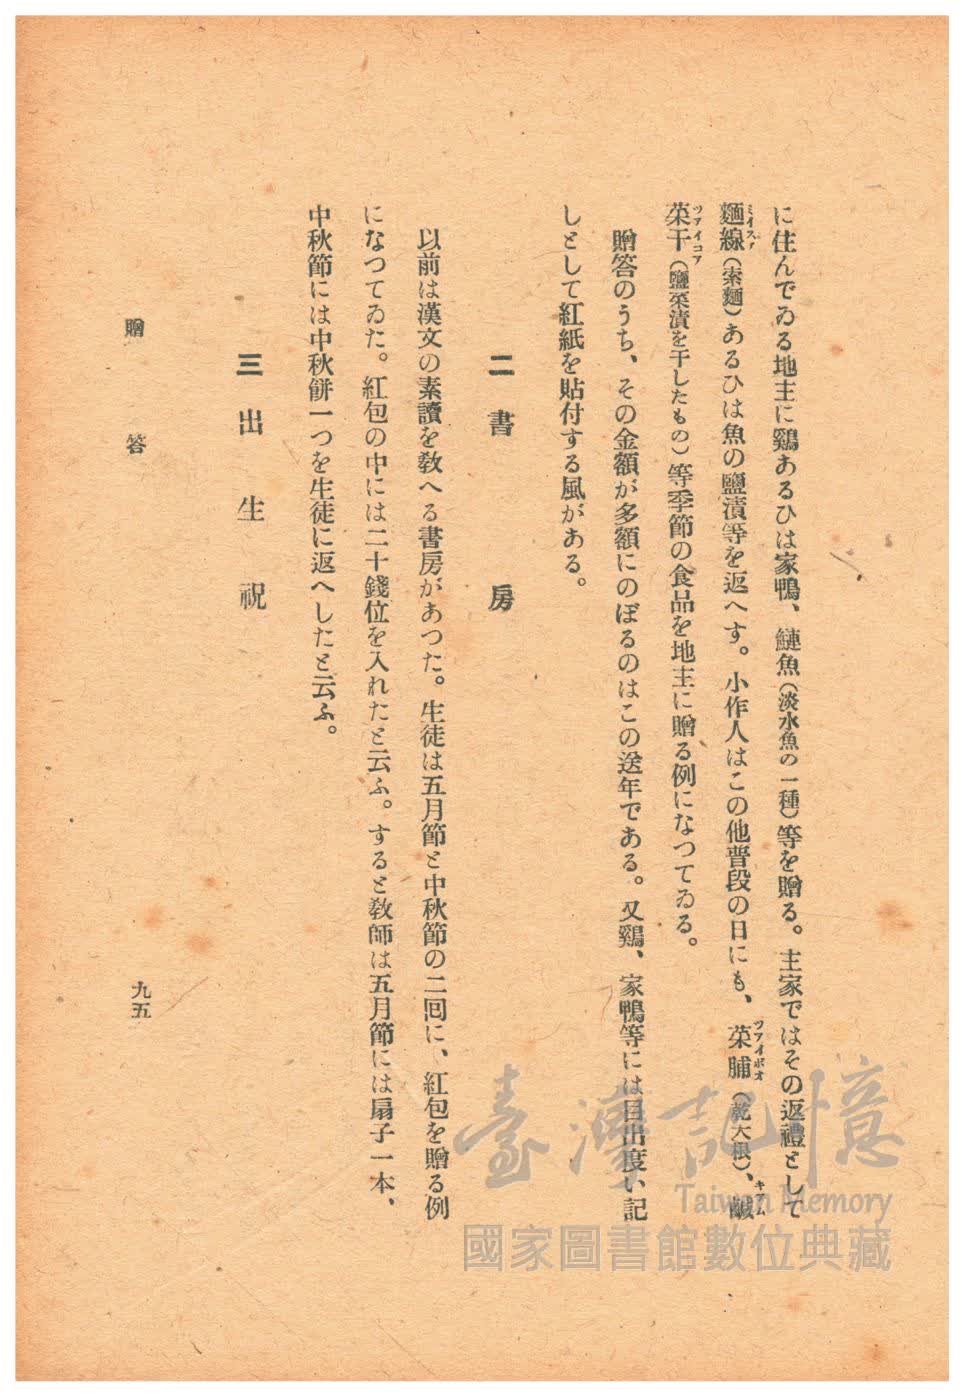 に住んでゐる地主に鷄あるひは家鴨、鰱魚(淡水魚の一種)等を贈る。主家ではその返禮として
麵線(索麵)あるひは魚の鹽漬等を返へす。小作人はこの他普段の日にも、菜脯(乾大根)、鹹
ミイスア
ツアイポオ
キアム
菜干(鹽菜漬を干したもの)等季節の食品を地主に贈る例になつてゐる。
ツアイコア
贈答のうち、その金額が多額にのぼるのはこの送年である。又鷄、家鴨等には目出度い記
しとして紅紙を貼付する風がある。
二 書 房
以前は漢文の素讀を敎へる書房があつた。生徒は五月節と中秋節の二囘に、紅包を贈る例
になつてゐた。紅包の中には二十錢位を入れたと云ふ。すると敎師は五月節には扇子一本、
中秋節には中秋餅一つを生徒に返へしたと云ふ。
三 出 生 祝
贈 答
九五
臺灣記憶
Taiwan Memory
國家圖書館數位典藏